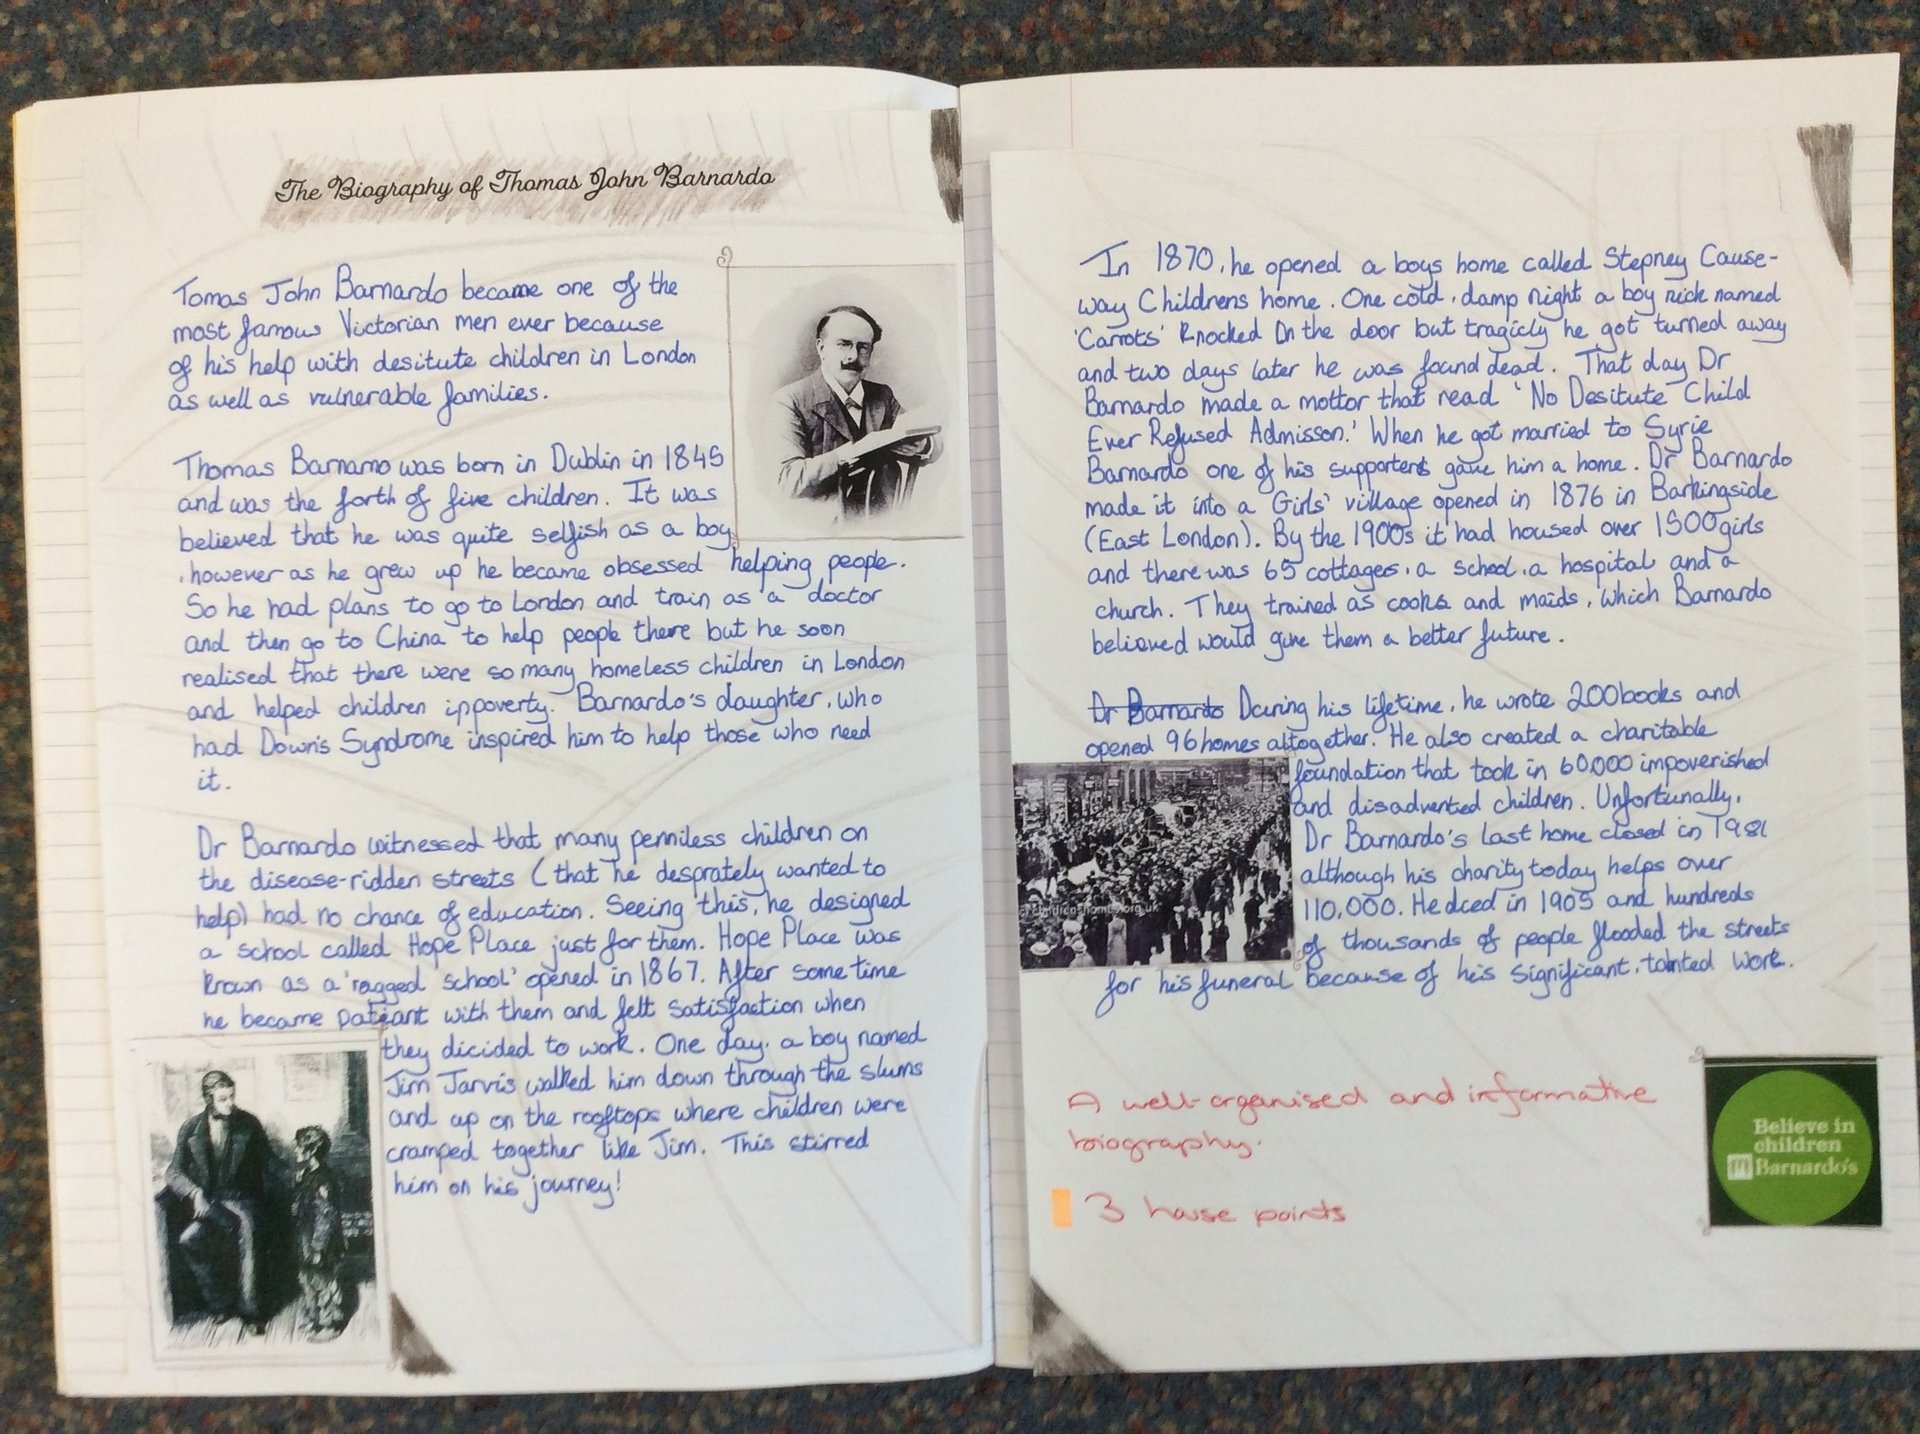 The Biography of Thomas John Barnardo
Tomas John Barnardo became one of the
most famous Victorian men ever because
of his help with desitute children in London
as well as vulnerable families.
Thomas Barnarno was born in Dublin in 1845
and was the forth of five children. It was
believed that he was quite selfish as a boy
, however as he grew up he became obsessed helping people.
So he had plans to go to London and train as a doctor
and then go to China to help people there but he soon
realised that there were so many homeless children in London
and helped children in poverty. Barnardo's daughter, who
had Down's Syndrome inspired him to help those who need
it.
Dr Barnardo witnessed that many penniless children on
the disease-ridden streets (that he desprately wanted to
help) had no chance of education. Seeing this, he designed
a school called Hope Place just for them. Hope Place was
known as a 'ragged school' opened in 1867. After some time
he became with them and felt satisfaction when
they dicided to work. One day, a boy named
Jim Jarvis walked him down through the slums
and up on the rooftops where children were
cramped together like Jim. This stirred
him on his journey!
In 1870, he opened a boys home called Stepney Cause-
way Childrens home. One cold, damp night a boy nick named
'Carrots' knocked on the door but tragicly he got turned away
and two days later he was found dead. That day Dr
Barnardo made a mottor that read 'No Desitute Child
Ever Refused Admisson.' When he got married to Syrie
Barnardo one of his supporters gave him a home. Dr Barnardo
made it into a Girls' village opened in 1876 in Barkingside
(East London). By the 1900s it had housed over 1500 girls
and there was 65 cottages, a school, a hospital and a
church. They trained as cooks and maids, which Barnardo
believed would give them a better future.
Dr Barnardo During his lifetime, he wrote 200 books and
opened 96 homes altogether. He also created a charitable
foundation that took in 60,000 impoverished
and disadvented children. Unfortunally,
Dr Barnardo's last home closed in 1981
although his charity today helps over
110,000. He died in 1905 and hundreds
of thousands of people flooded the streets
for his funeral because of his significant, work.
childrenshomes.org.uk
A well-organised and informative
biography.
3 house points
Believe in
children
Barnardo's